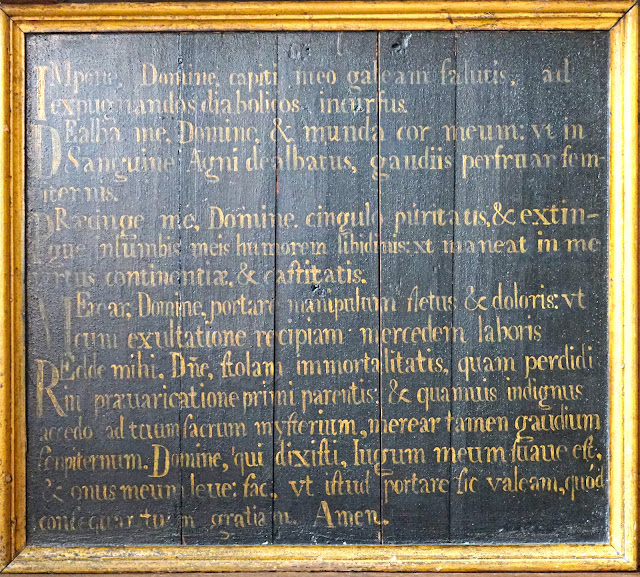 IMpone, Domine, capiti meo galeam salutis, ad
expugnandos diabolicos incursus.
DEalba me, Domine, & munda cor meum: vt in
Sanguine Agni dealbatus, gaudiis perfruar sem-
piternis.
PRæcinge me, Domine, cingulo puritatis, & extin-
gue in lumbis meis humorem libidinis: vt maneat in me
virtus continentiæ, & castitatis.
MErear, Domine, portare manipulum fletus & doloris: vt
cum exultatione recipiam mercedem laboris
REdde mihi, Dñe, stolam immortalitatis, quam perdidi
in prævaricatione primi parentis: & quamuis indignus
accedo ad tuum sacrum mysterium, merear tamen gaudium
sempiternum. Domine, qui dixisti, Iugum meum suaue est,
& onus meum leue: fac, vt istud portare sic valeam, quód
consequar tuam gratiam. Amen.